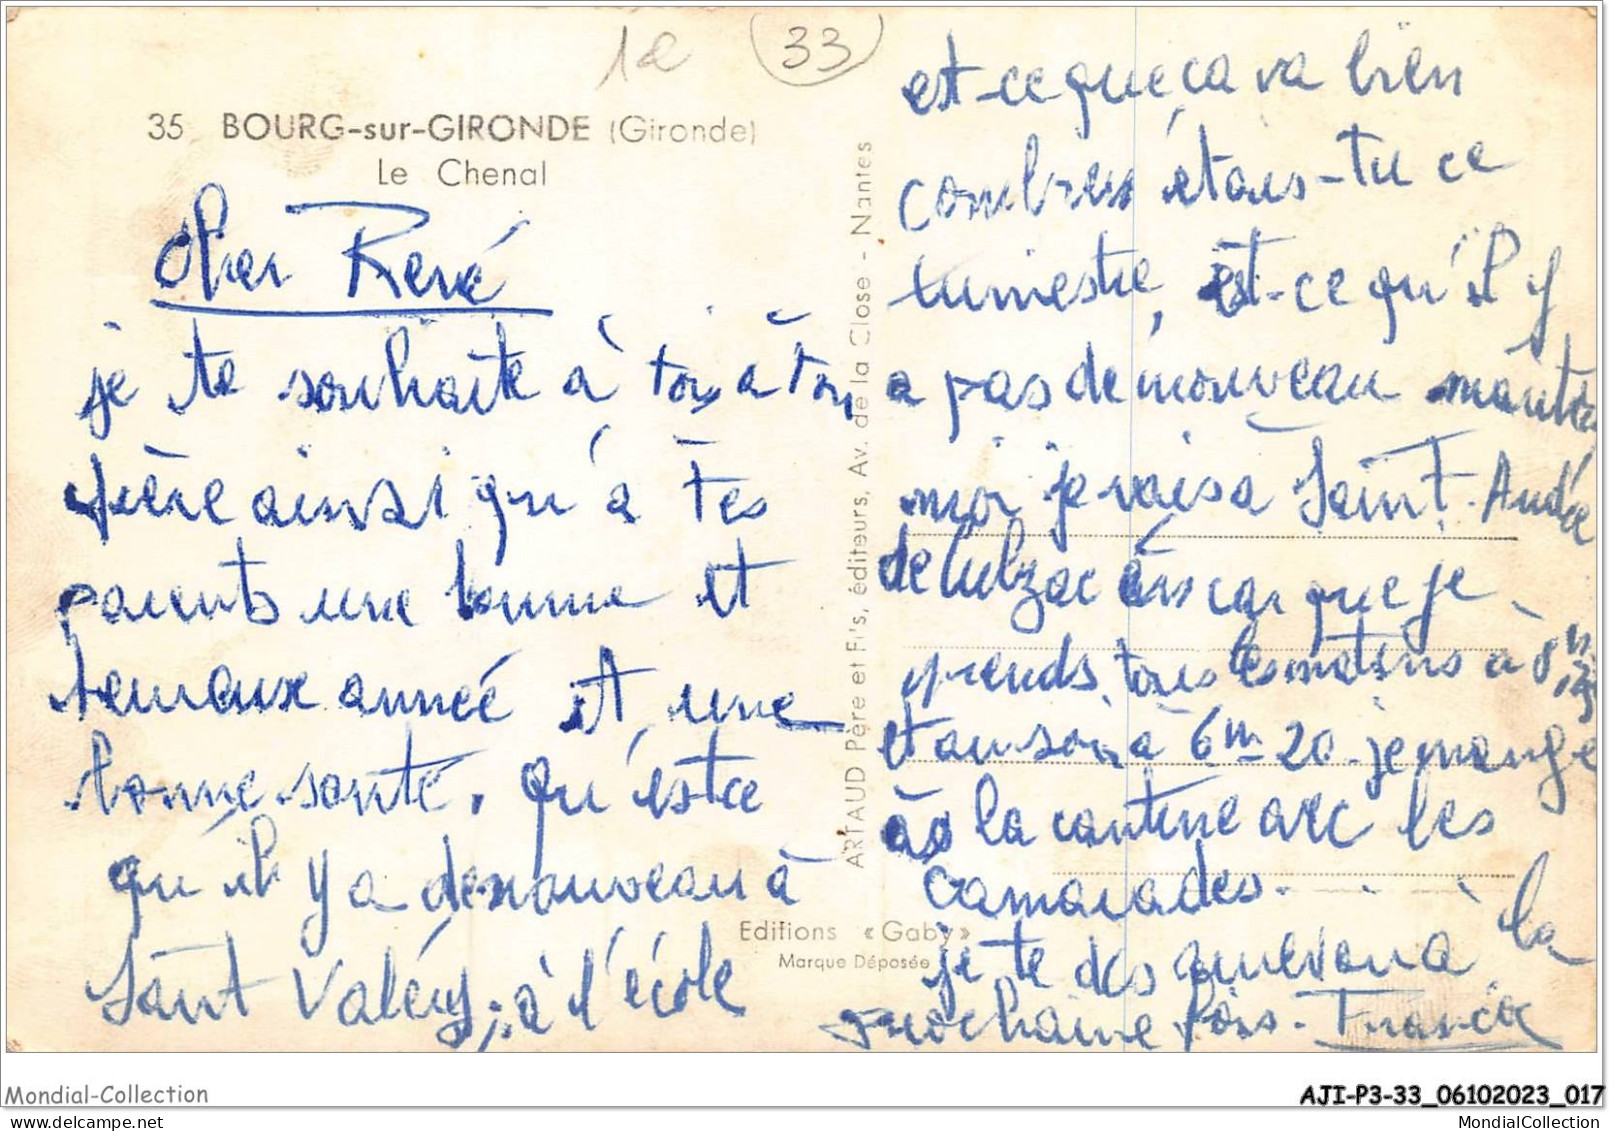 1e
33
35 BOURG-sur-GIRONDE (Gironde)
Le Chenal
Cher René
je te souhaite à toi à ton
frère ainsi qu'à tes
parents une bonne et
heureuse année et une
bonne santé. qu'est ce
qu'il y a de nouveau à
Saint Valéry, à l'école
est-ce que ça va bien
combien étais-tu ce
trimestre, est-ce qu'il y
a pas de nouveau maître
moi je vais à Saint-André
de Cubzac en car que je
prends tous les matins à 8h
et au soir à 6h 20. je mange
à la cantine avec les
camarades.
je te dis au revoir à la
prochaine fois. Francis
ARTAUD Père et Fils, éditeurs, Av. de la Close - Nantes
Editions «Gaby»
Marque Déposée
Mondial-Collection
AJI-P3-33_06102023_017
MondialCollection